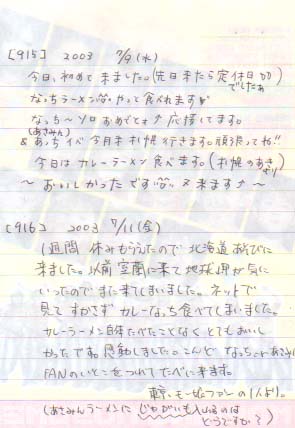 [915] 2003 7/9(水)
今日、初めて来ました。(先日来たら定休日
でしたぁ
なっちラーメン やっと食べれます
なっち〜ソロおめでとォ 応援してます。
(あさみん)
& あっちイベ 今月末 札幌行きます。頑張ってね!!
今日は カレーラーメン 食べます。(札幌のあき
より)
〜 おいしかったです 又来ます 〜
[916] 2003 7/11(金)
1週間 休みもらえたので 北海道 遊びに
来ました。以前 室蘭に来て 地球岬が気に
いったのでまた来てしまいました。ネットで
見て すかさず カレーなっち食べてしまいました。
カレーラーメン自体たべたことなく とてもおいし
かったです。感動しました。こんど なっち
FANのいとこをつれてたべに来ます。
東京、モー娘。ファンの1人より。
(あさみんラーメンに じゃがいも入れるのは
どうですか?)